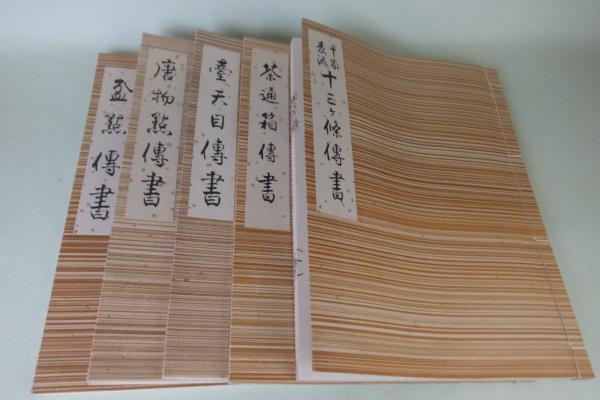 千家
表流
十三ヶ條傳書
茶通箱傳書
臺天目傳書
唐物點傳書
盆點傳書